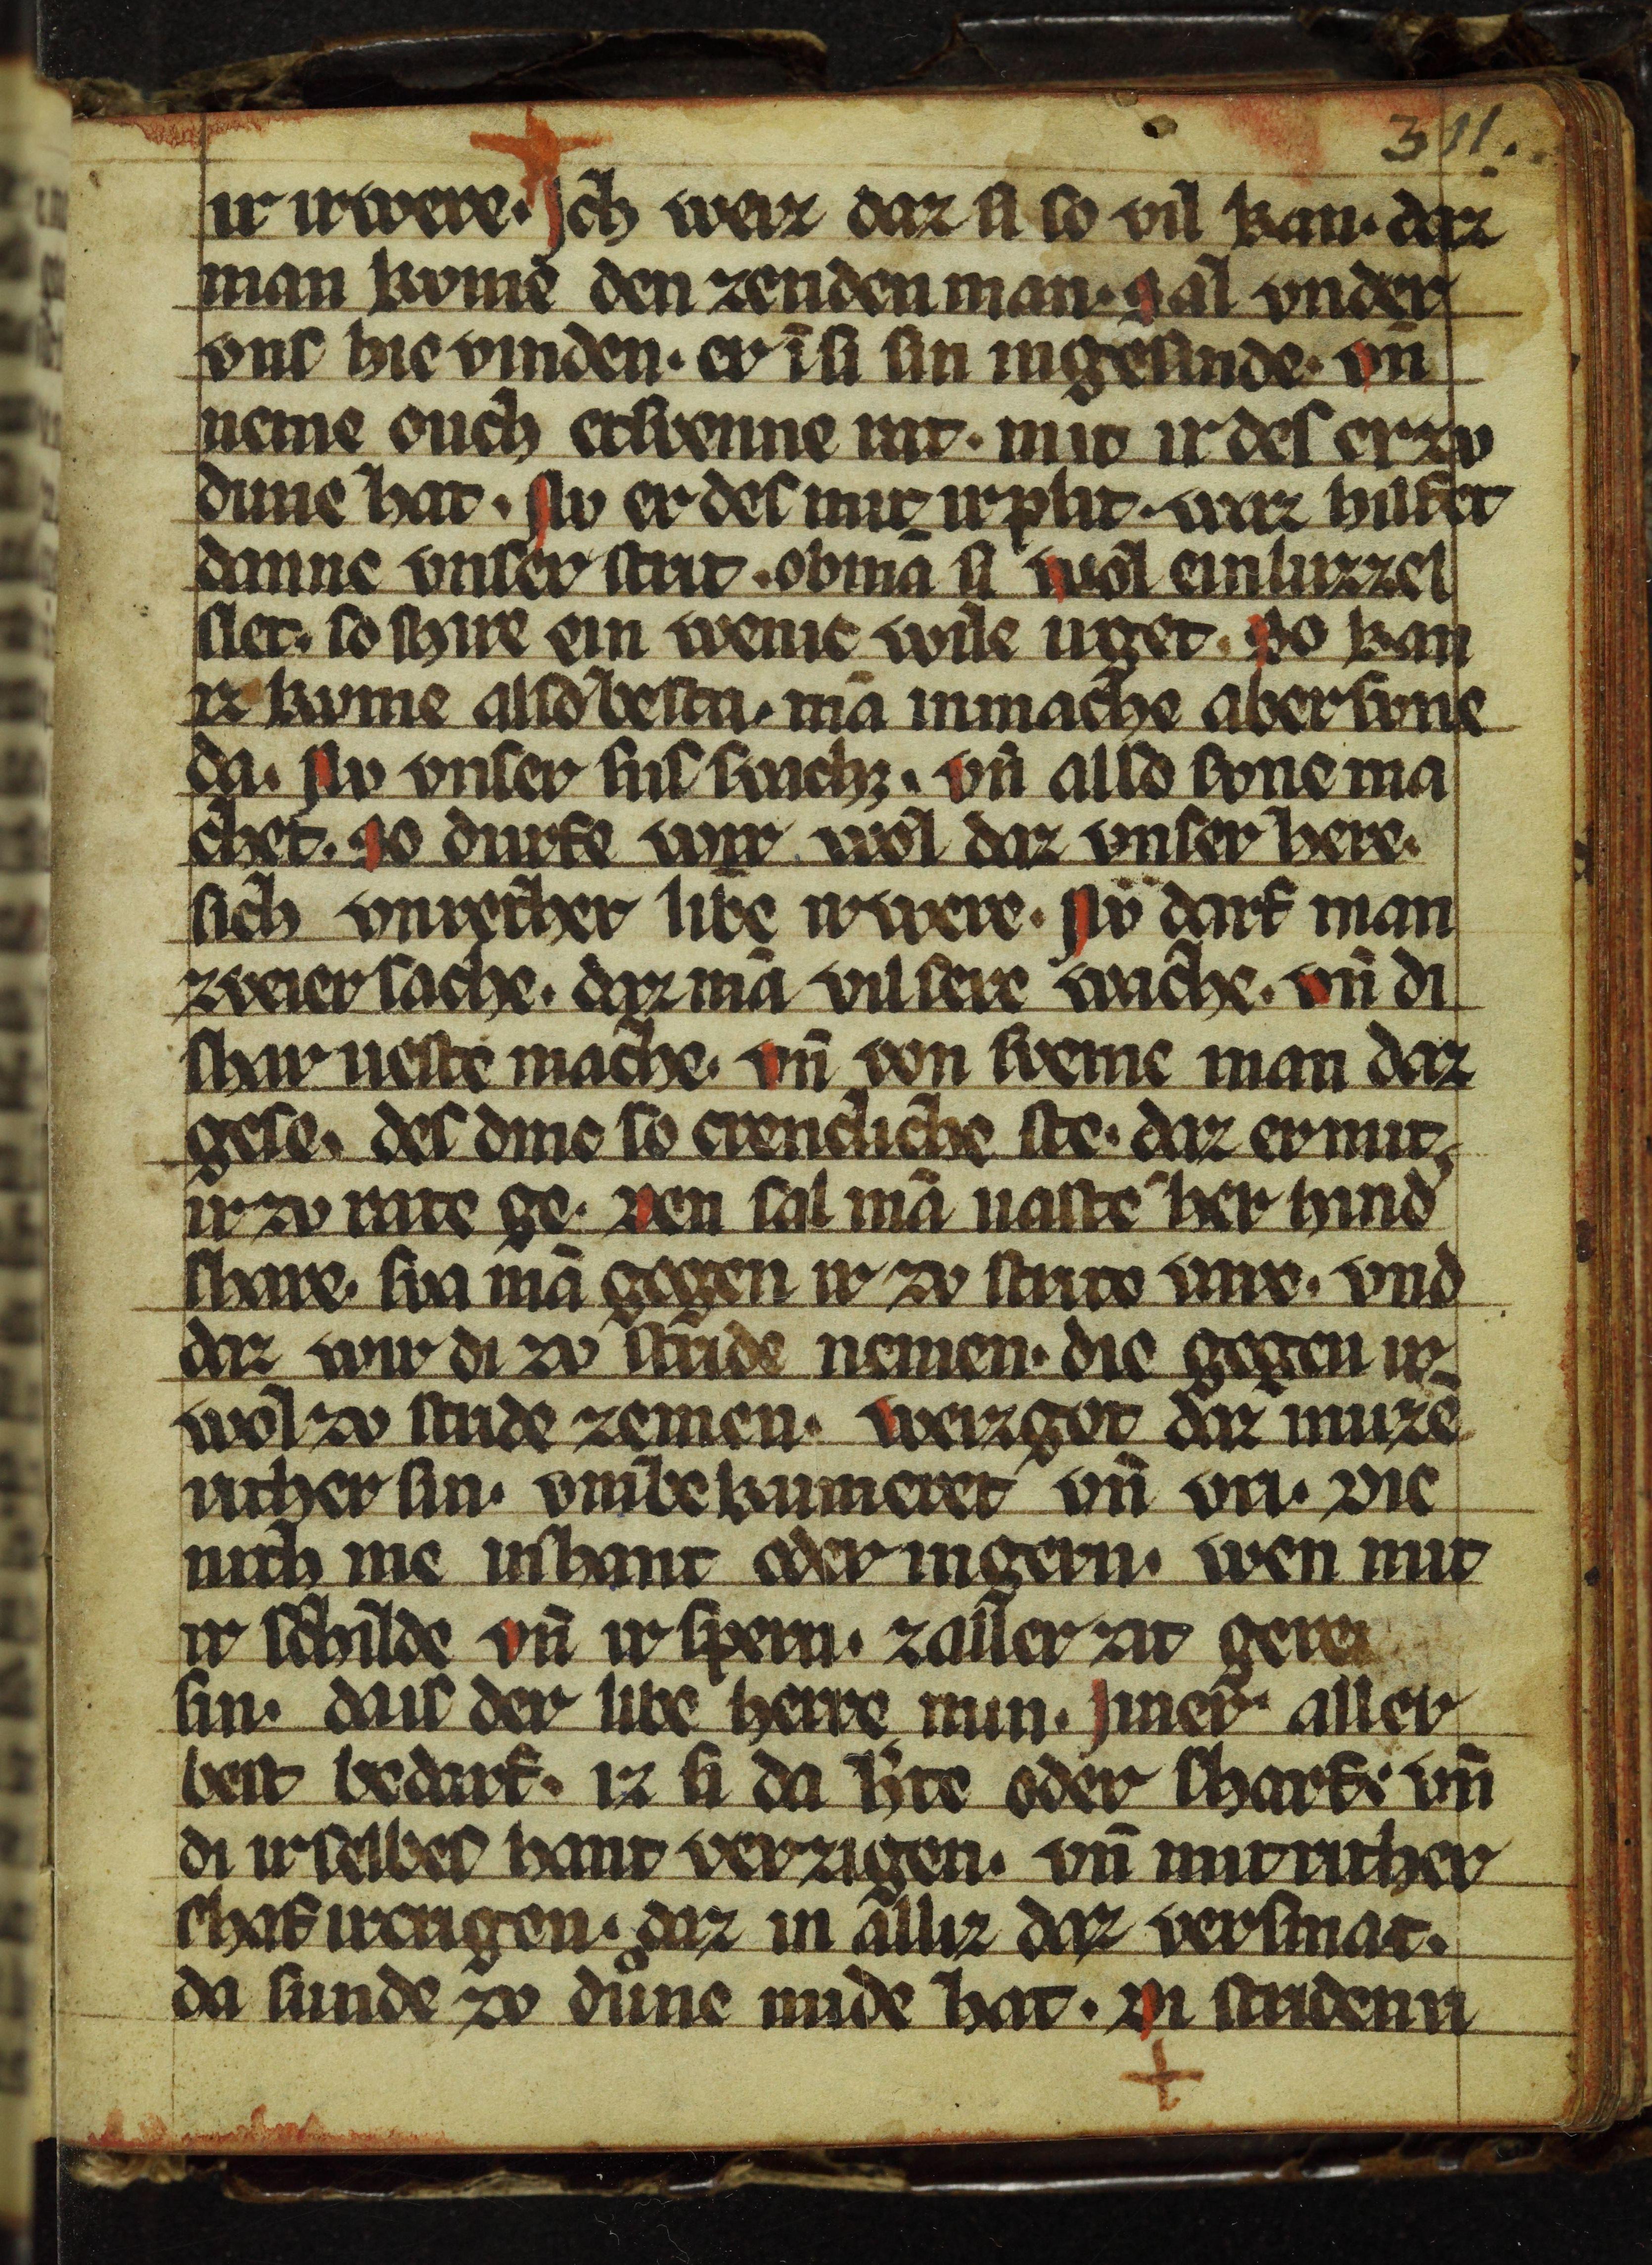 311.
ir irwere. Jch weiz daz si so vil kan. daz
man kvme den zenden man. Sal vnder
vns hie vinden. er īsi sin ingesinde. vn̄
neme ouch etswenne rat. mit ir des er zv
dune hat. Nv er des mit ir plit. waz hilfet
danne vnser strit. obmā si wol ein luzzel
slet. so shire ein wenic wile irget. So kan
iz kvme also besta. mā inmache aber svne
da. Nv vnser sus swachz. vn̄ also svne ma
chet. So durfe wir wol daz vnser here.
sich vnrecher libe irwere. Nv darf man
zweier sache. daz mā vil sere wache. vn̄ di
shar ueste mache. vn̄ von sweme man daz
gese. des dinc so crencliche ste. daz er mit
ir zv rate ge. Den sal mā uaste her hind
share. swa mā gegen ir zv strite vare. vnd
daz wir di zv stride nemen. die gegen ir
wol zv stride zemen. weizgot daz muzē
richer sin. vmbekumeret vn̄ vri. Die
nich me inshant oder ingern. wen mit
ir schilde vn̄ ir spern. zaller zit gerei
sin. daus der libe herre min. Jmer aller
best bedarf. iz si da h̄te oder sharf. vn̄
di ir selbes hant verzigen. vn̄ mit richer
shaf irerigen. daz in alliz daz versmat.
da sunde zv důne mide hat. Di stridenn